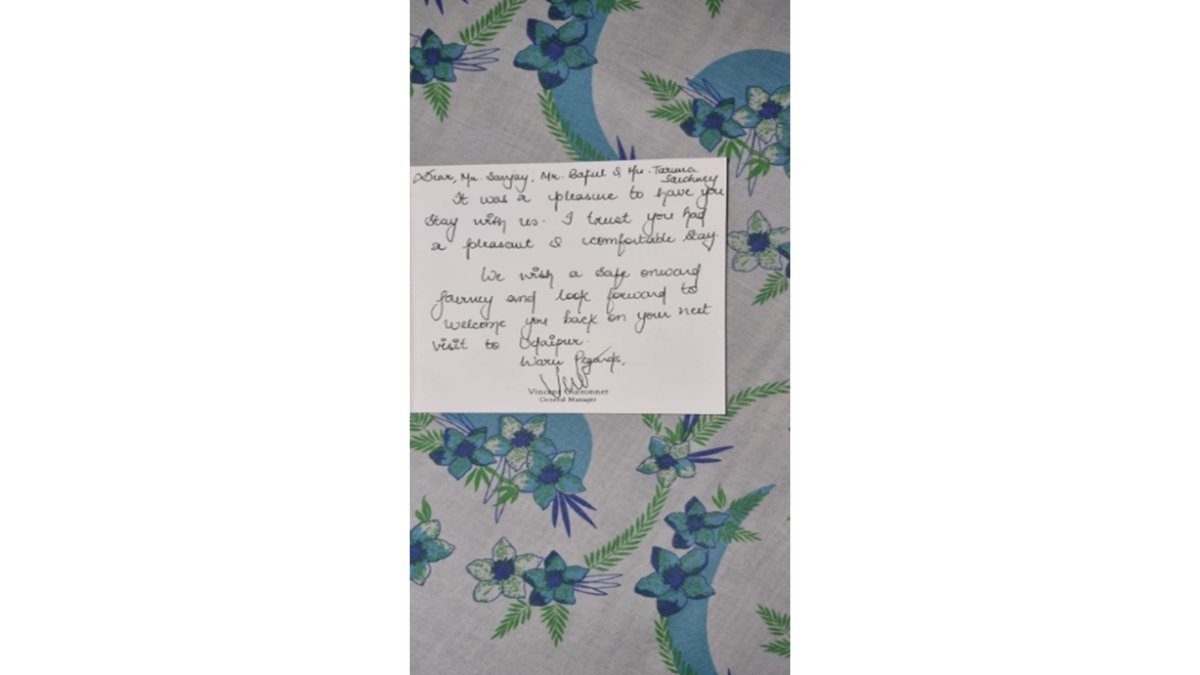 Dear, Mr. Sanjay, Mr. Baful & Ms. Taruna
Sawhney
It was a pleasure to have you
stay with us. I trust you had
a pleasant & comfortable stay.
We wish a safe onward
journey and look forward to
welcome you back on your next
visit to Udaipur.
Warm Regards,
Vincent
General Manager